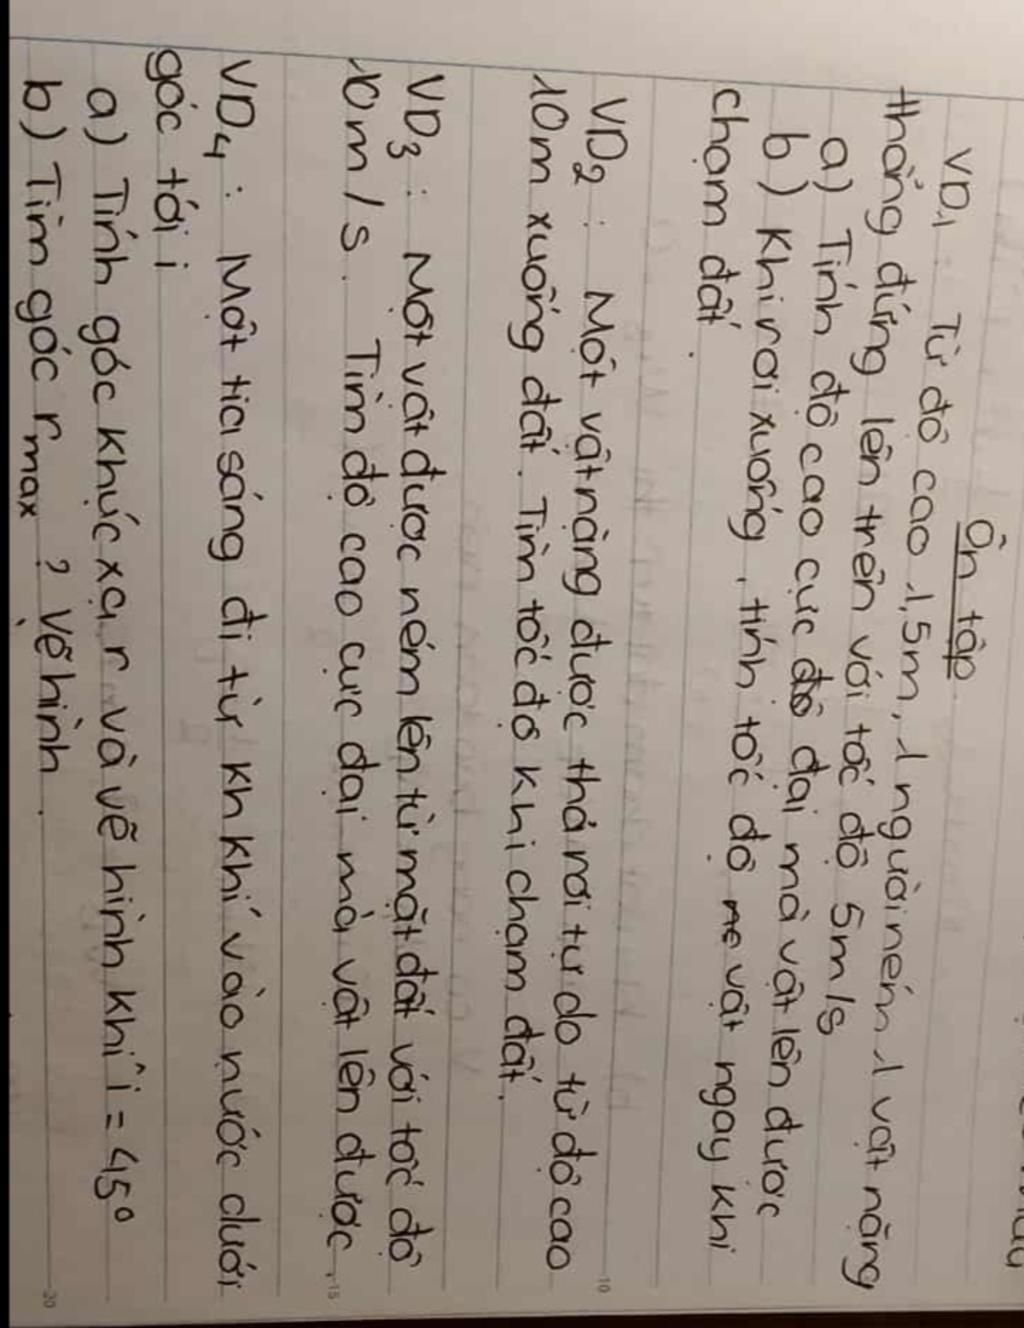 Ôn tập
VD1: Từ độ cao 1,5m, 1 người ném 1 vật nặng
thẳng đứng lên trên với tốc độ 5m/s
a) Tính độ cao cực đại mà vật lên được
b) Khi rơi xuống, tính tốc độ vật ngay khi
chạm đất.
VD2: Một vật nặng được thả rơi tự do từ độ cao
10m xuống đất. Tìm tốc độ khi chạm đất.
VD3: Một vật được ném lên từ mặt đất với tốc độ
10m/s. Tìm độ cao cực đại mà vật lên được.
VD4: Một tia sáng đi từ kh khí vào nước dưới
góc tới i
a) Tính góc khúc xạ r và vẽ hình khi i = 45°
b) Tìm góc rmax? Vẽ hình.
10
15
20